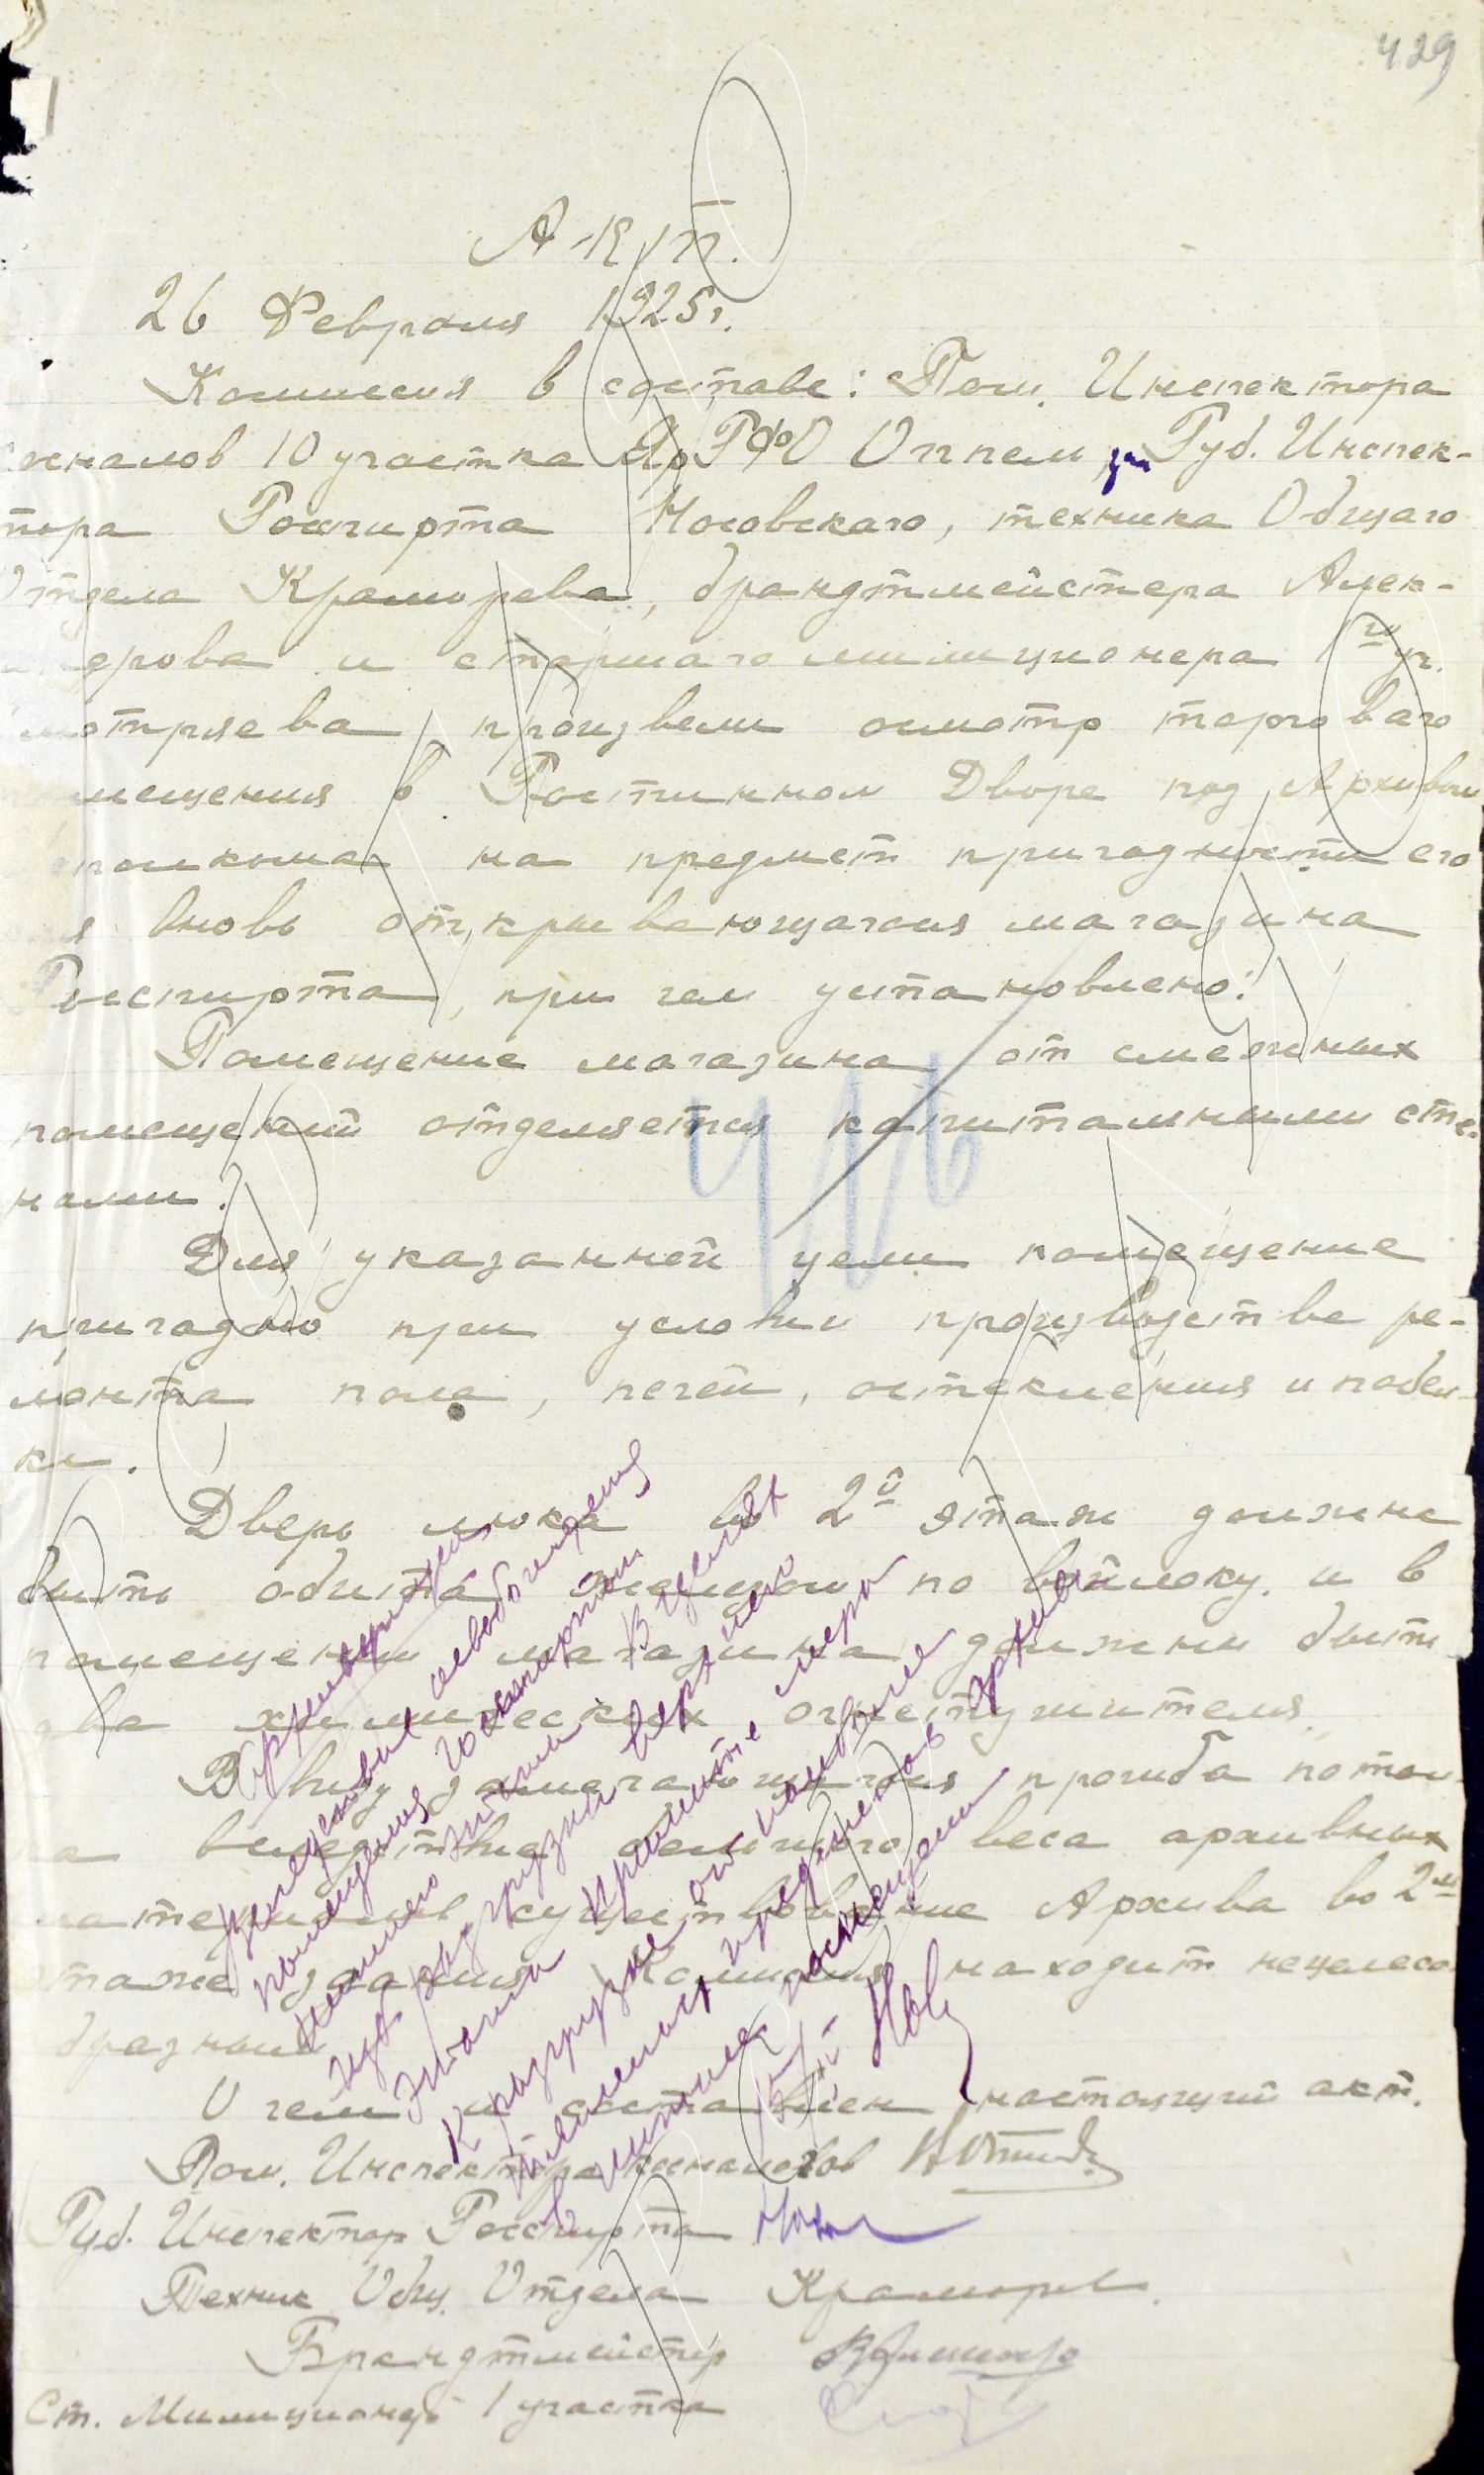 429
Акт.
26 Февраля 1925 г.
Комиссия в составе: Пом. Инспектора
косналогов 10 участка ЯрГФО Оппель, Губ. Инспек-
тора Госспирта Носовского, техника Общаго
Отдела Краморева, брандтмейстера Алек-
андрова и старшаго милиционера 1го уч.
произвели осмотр торговаго
мещения в Гостинном Дворе под Архивом
на предмет пригодности его
я вновь открывающагося магазина
Госспирта, при чем установлено:
Помещение магазина от смежных
помещений отделяется капитальными сте-
нами.
416
Для указанной цели помещение
пригодно при условии производства ре-
монта пола, печей, остекления и побел-
ки.
Дверь люка во 2й этаж должна
быть обита железом по войлоку и в
помещении магазина должны быть
два химических огнетушителя.
В виду замечающагося прогиба потол-
ка вследствие большого веса архивных
материалов существование Архива во 2м
этаже здания Комиссия находит нецелесо-
образным.
О чем и составлен настоящий акт.
Пом. Инспектора косналогов
Губ. Инспектор Госспирта
Техник Общ. Отдела Краморев.
Брандтмейстер
Ст. Милиционер 1 участка
освобождения
помещения Госспиртом
нижнего этажа В целях
разгрузки верхнего
этажа примите меры
к разгрузке от
предметов архива